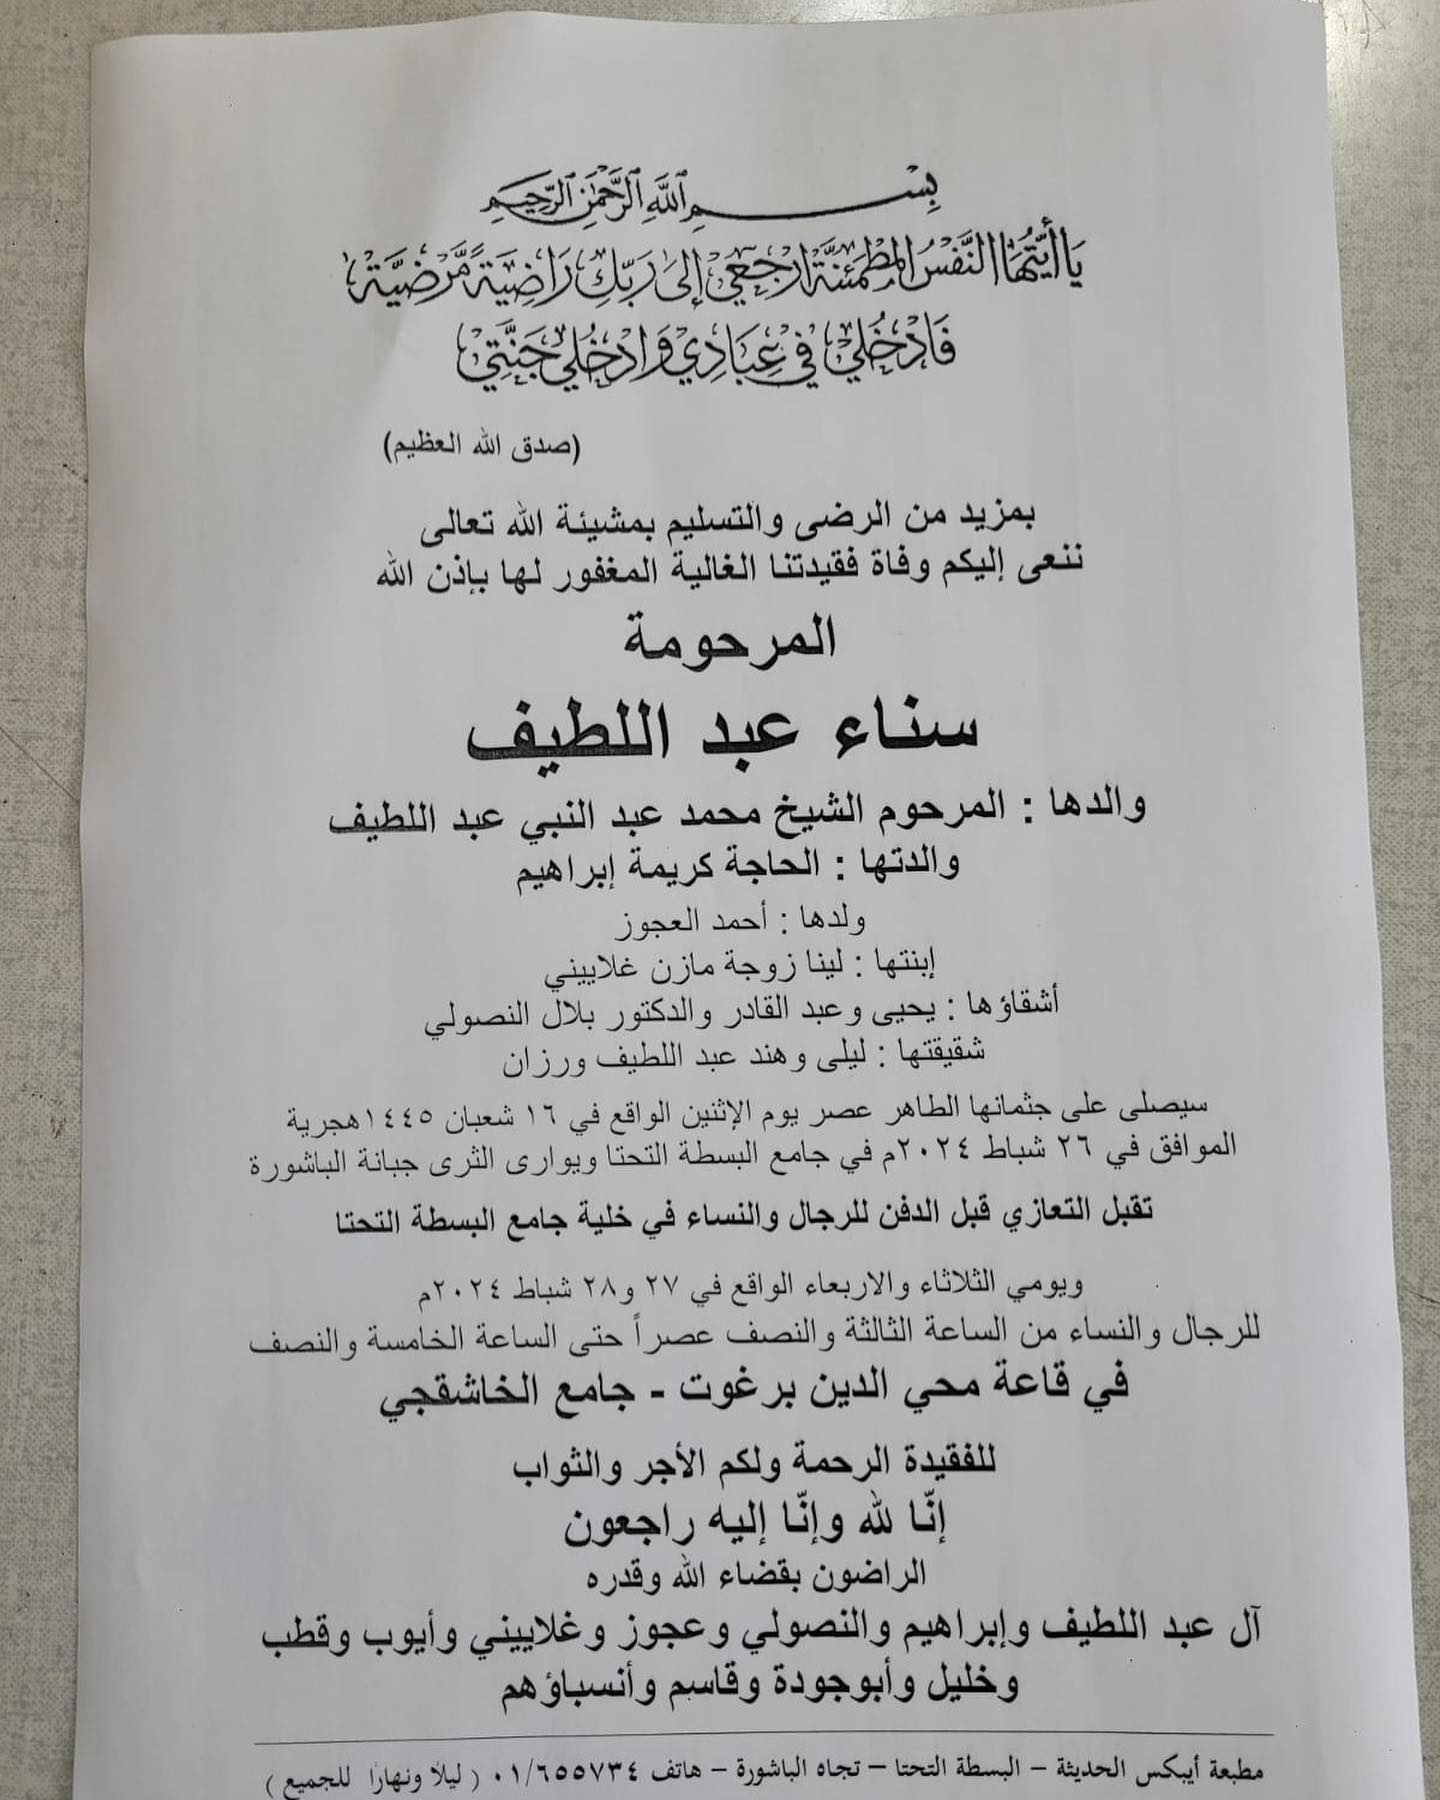 بِسْمِ اللَّهِ الرَّحْمَٰنِ الرَّحِيمِ
يَا أَيَّتُهَا النَّفْسُ الْمُطْمَئِنَّةُ ارْجِعِي إِلَى رَبِّكِ رَاضِيَةً مَّرْضِيَّةً
فَادْخُلِي فِي عِبَادِي وَادْخُلِي جَنَّتِي
(صدق الله العظيم)
بمزيد من الرضى والتسليم بمشيئة الله تعالى
ننعى إليكم وفاة فقيدتنا الغالية المغفور لها بإذن الله
المرحومة
سناء عبد اللطيف
والدها : المرحوم الشيخ محمد عبد النبي عبد اللطيف
والدتها : الحاجة كريمة إبراهيم
ولدها : أحمد العجوز
إبنتها : لينا زوجة مازن غلاييني
أشقاؤها : يحيى وعبد القادر والدكتور بلال النصولي
شقيقتها : ليلى وهند عبد اللطيف ورزان
سيصلى على جثمانها الطاهر عصر يوم الإثنين الواقع في ١٦ شعبان ١٤٤٥هجرية
الموافق في ٢٦ شباط ٢٠٢٤م في جامع البسطة التحتا ويوارى الثرى جبانة الباشورة
تقبل التعازي قبل الدفن للرجال والنساء في خلية جامع البسطة التحتا
ويومي الثلاثاء والاربعاء الواقع في ٢٧ و٢٨ شباط ٢٠٢٤م
للرجال والنساء من الساعة الثالثة والنصف عصراً حتى الساعة الخامسة والنصف
في قاعة محي الدين برغوت - جامع الخاشقجي
للفقيدة الرحمة ولكم الأجر والثواب
إنّا لله وإنّا إليه راجعون
الراضون بقضاء الله وقدره
آل عبد اللطيف وإبراهيم والنصولي وعجوز وغلاييني وأيوب وقطب
وخليل وأبوجودة وقاسم وأنسباؤهم
مطبعة أيبكس الحديثة – البسطة التحتا – تجاه الباشورة – هاتف ٠١/٦٥٥٧٣٤ ( ليلاً ونهاراً للجميع )